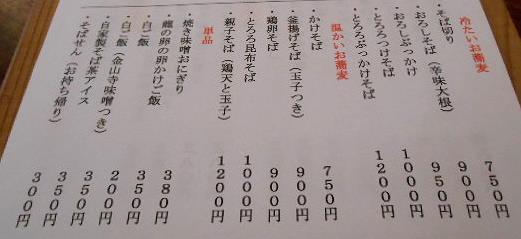 冷たいお蕎麦
・そば切り 750円
・おろしそば(辛味大根) 900円
・おろしぶっかけ 950円
・とろろつけそば 1000円
・とろろぶっかけそば 1200円
温かいお蕎麦
・かけそば 750円
・釜揚げそば(玉子つき) 900円
・鶏卵そば 900円
・とろろ昆布そば 1000円
・親子そば(鶏天と玉子) 1200円
単品
・焼き味噌おにぎり 380円
・龍の卵の卵かけご飯 350円
・白ご飯 200円
・白ご飯(金山寺味噌つき) 350円
・自家製そば茶アイス 350円
・そばせん(お持ち帰り) 300円